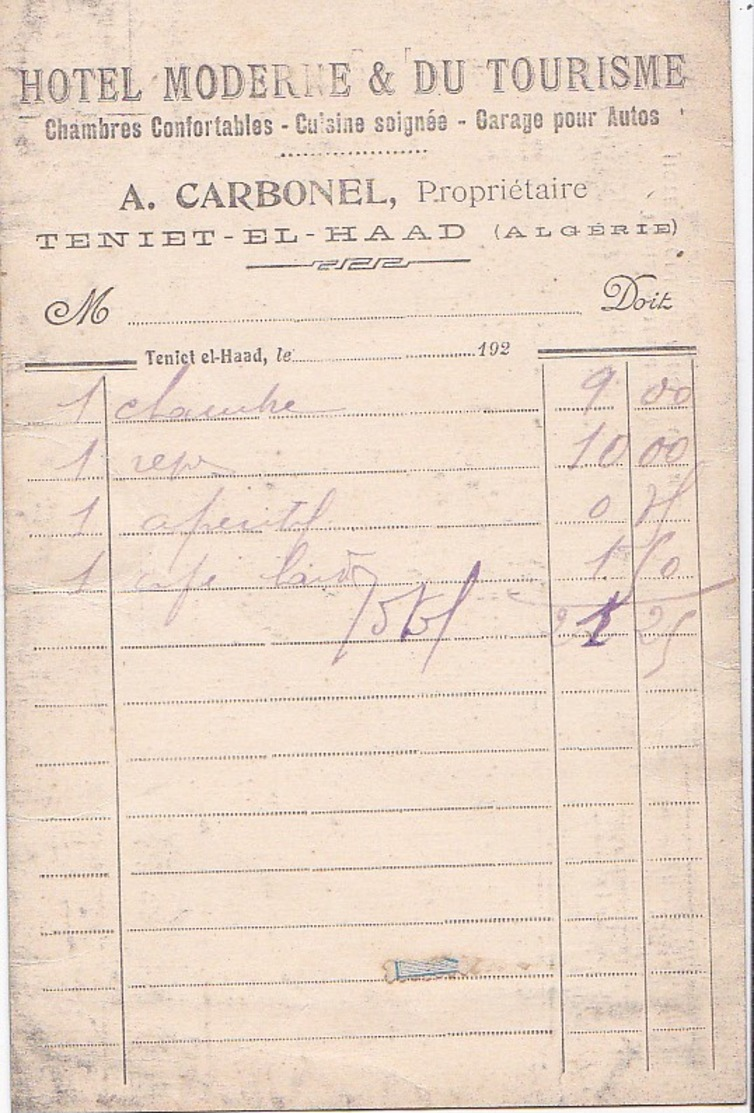 HOTEL MODERNE & DU TOURISME
Chambres Confortables - Cuisine soignée - Garage pour Autos
A. CARBONEL, Propriétaire
TENIET-EL-HAAD (ALGÉRIE)
M Doit
Teniet el-Haad, le 192
1 chambre 9 00
1 repas 10 00
1 aperitif 0 75
1 café 1 50
Total 21 25